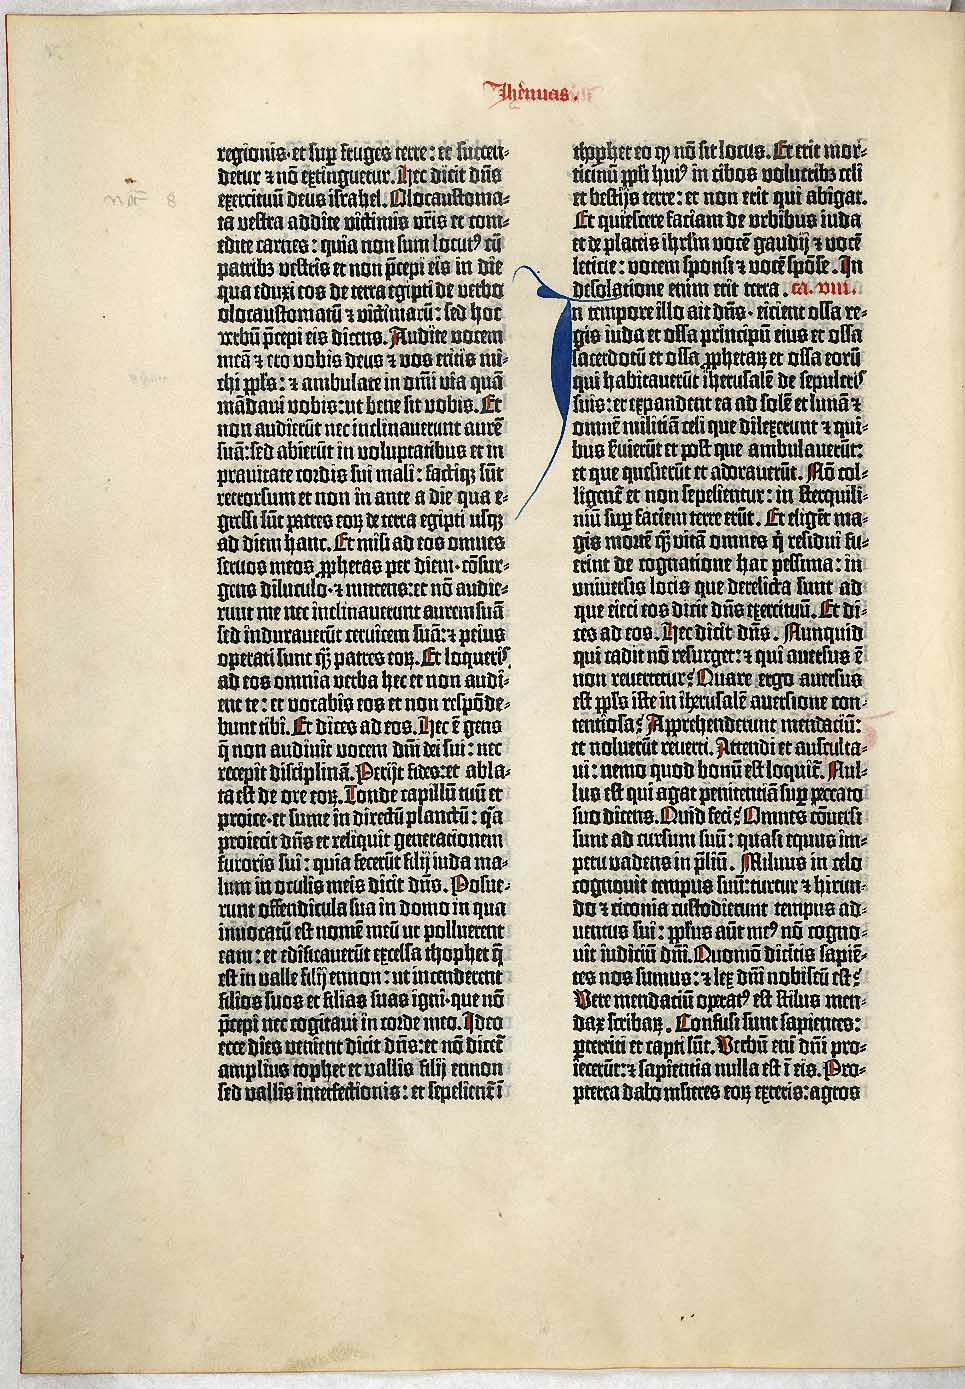 Jheremias.
regionis·et sup̄ fruges terre: et succen-
detur ⁊ nō extinguetur. Hec dicit dn̄s
exercituū deus israhel. Olocaustoma-
ta vestra addite victimis vr̄is et com-
edite carnes: quia non sum locutꝰ cū
patribꝫ vestris et non p̄cepi eis in die
qua eduxi eos de terra egipti de verbo
olocaustomatū ⁊ victimarū: sed hoc
verbū p̄cepi eis dicens. Audite vocem
meā ⁊ ero vobis deus ⁊ vos eritis mi-
chi pp̄ls: ⁊ ambulate in om̄i via quā
mādaui vobis: ut bene sit vobis. Et
non audierūt nec inclinauerunt aurē
suā: sed abierūt in voluptatibus et in
prauitate cordis sui mali: factiqꝫ sūt
retrorsum et non in ante a die qua e-
gressi sūt patres eoꝝ de terra egipti usqꝫ
ad diem hanc. Et misi ad eos omnes
seruos meos ꝓphetas per diem·cōsur-
gens diluculo·⁊ mittens: et nō audie-
runt me nec inclinauerunt aurem suā
sed indurauerūt ceruicem suā: ⁊ peius
operati sunt qꝫ̄ patres eoꝝ. Et loqueris
ad eos omnia verba hec et non audi-
ent te: et vocabis eos et non respōde-
bunt tibi. Et dices ad eos. Hec ē gens
q̄ non audiuit vocem dn̄i dei sui: nec
recepit disciplinā. Perijt fides: et abla-
ta est de ore eoꝝ. Tonde capillū tuū et
proice·et sume in directū planctū: q̄a
proiecit dn̄s et reliquit generationem
furoris sui: quia fecerūt filij iuda ma-
lum in oculis meis dicit dn̄s. Posue-
runt offendicula sua in domo in qua
inuocatū est nomē meū ut polluerent
eam: et edificauerūt excelsa thophet q̄
est in valle filij ennon: ut incenderent
filios suos et filias suas igni·que nō
p̄cepi nec cogitaui in corde meo. Ideo
ecce dies venient dicit dn̄s: et nō dicet̄
amplius tophet et vallis filij ennon
sed vallis interfectionis: et sepelient̄ ī
thophet eo ꝙ nō sit locus. Et erit mor-
ticinū pp̄li huiꝰ in cibos volucribꝫ celi
et bestijs terre: et non erit qui abigat.
Et quiescere faciam de vrbibus iuda
et de plateis ihrl̄m vocē gaudij ⁊ vocē
leticie: vocem sponsi ⁊ vocē spōse. In
desolatione enim erit terra. ca. viii.
In tempore illo ait dn̄s·eicient ossa re-
gis iuda et ossa principū eius et ossa
sacerdotū et ossa ꝓphetaꝝ et ossa eorū
qui habitauerūt iherusalē de sepulcris
suis: et expandent ea ad solē et lunā ⁊
omnē militiā celi que dilexerunt ⁊ qui-
bus s̄uierūt et post que ambulauerūt:
et que quesierūt et adorauerūt. Nō col-
ligent̄ et non sepelientur: in sterquili-
niū sup̄ faciem terre erūt. Et eligēt ma-
gis mortē qꝫ̄ vitā omnes q̄ residui fu-
erint de cognatione hac pessima: in
vniuersis locis que derelicta sunt ad
que eieci eos dicit dn̄s exercituū. Et di-
ces ad eos. Hec dicit dn̄s. Nunquid
qui cadit nō resurget: ⁊ qui auersus ē
non reuertetur? Quare ergo auersus
est pp̄ls iste in iherusalē auersione con-
tentiosa? Apprehenderunt mendaciū:
et noluerūt reuerti. Attendi et ausculta-
ui: nemo quod bonū est loquit̄. Nul-
lus est qui agat penitentiā sup̄ peccato
suo dicens. Quid feci? Omnes cōuersi
sunt ad cursum suū: quasi equus im-
petu vadens in p̄liū. Miluus in celo
cognouit tempus suū: turtur ⁊ hirun-
do ⁊ ciconia custodierunt tempus ad-
uentus sui: pp̄lus aūt meꝰ nō cogno-
uit iudiciū dn̄i. Quomō dicitis sapiē-
tes nos sumus: ⁊ lex dn̄i nobiscū est?
Vere mendaciū operatꝰ est stilus men-
dax scribaꝝ. Confusi sunt sapientes:
ꝑterriti et capti sūt. Verbū eni dn̄i pro-
iecerūt: ⁊ sapientia nulla est ī eis. Pro-
pterea dabo mulieres eoꝝ exteris: agros